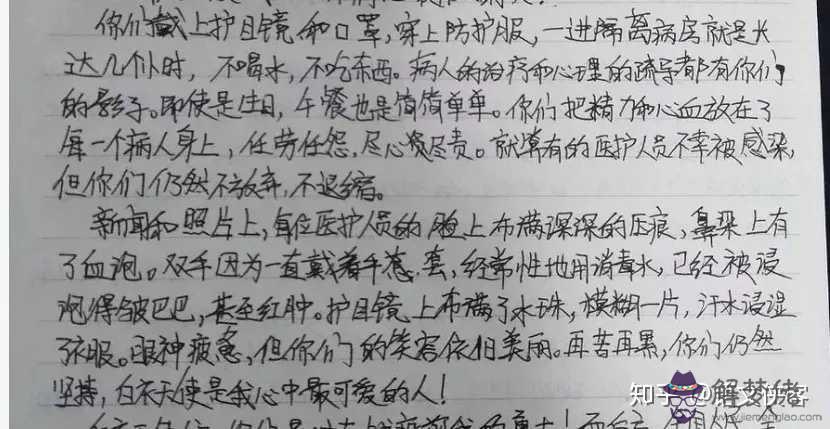 你们戴上护目镜和口罩,穿上防护服,一进隔离病房就是长
达几个小时,不喝水,不吃东西。病人的治疗和心理的疏导都有你们
的影子。即使是生日,午餐也是简简单单。你们把精力和心血放在了
每一个病人身上,任劳任怨,尽心尽责。就算有的医护人员不幸被感染,
但你们仍然不放弃,不退缩。
新闻和照片上,每位医护人员的脸上布满深深的压痕,鼻梁上有
了血泡。双手因为一直戴着手套,经常性地用消毒水,已经被浸
泡得皱巴巴,甚至红肿。护目镜上布满了水珠,模糊一片,汗水浸湿
了衣服。眼神疲惫,但你们的笑容依旧美丽。再苦再累,你们仍然
坚持,白衣天使是我心中最可爱的人!
知乎
解梦猪
www.jiemengliao.com